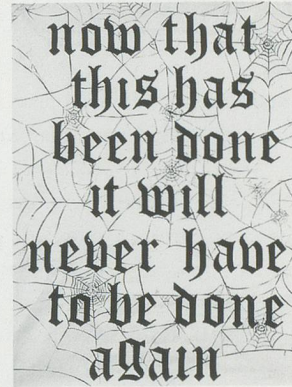 now that
this has
been done
it will
never have
to be done
again